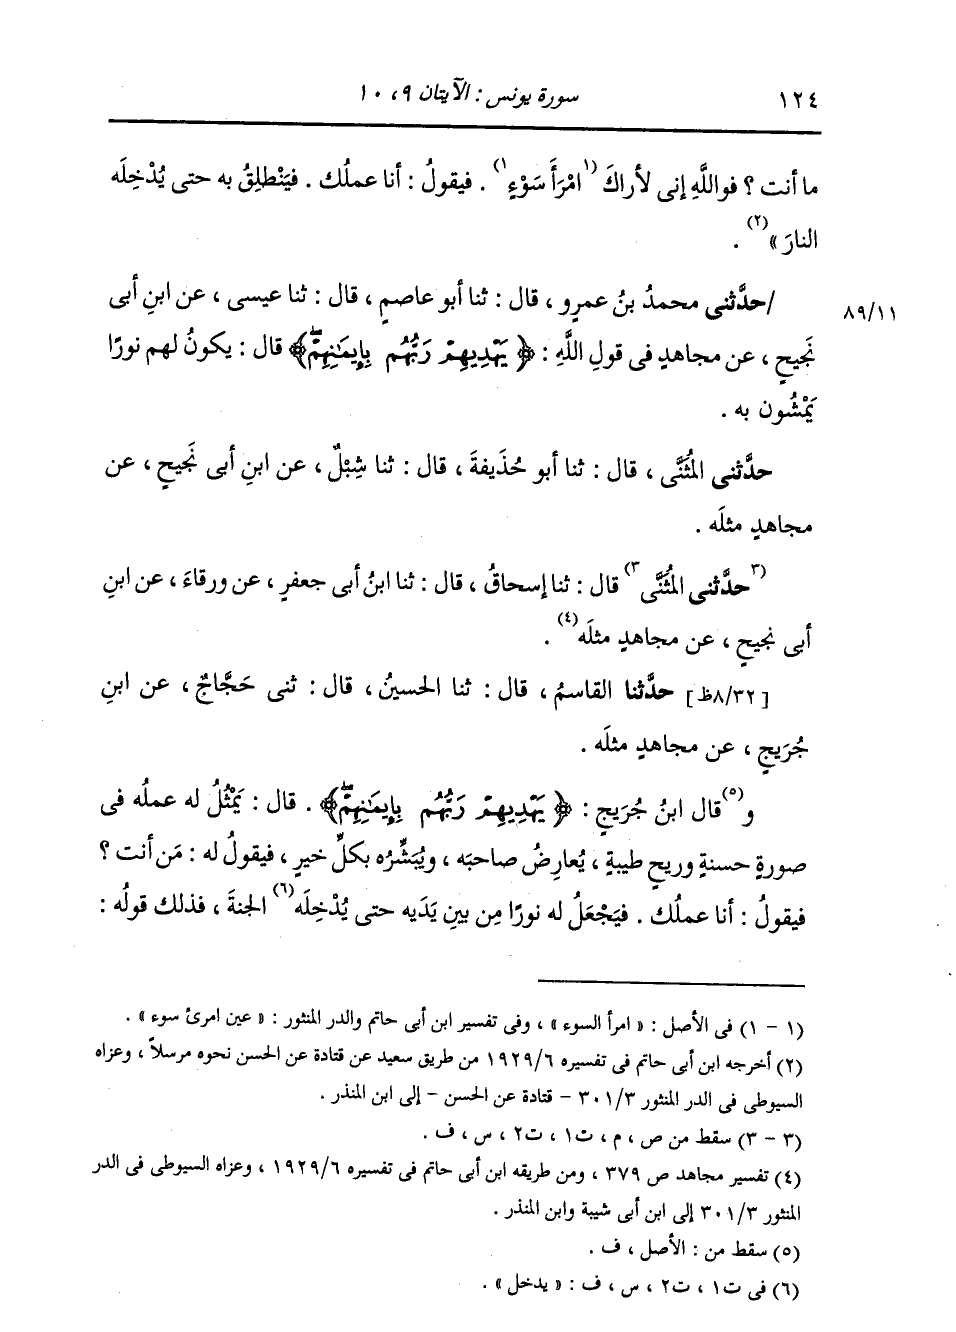 ١٢٤ سورة يونس : الآيتان ٩ ، ١٠
ما أنت ؟ فواللَّهِ إنى لأراكَ ⁽¹امْرَأَ سَوْءٍ¹⁾ . فيقولُ : أنا عملُك . فيَنْطلِقُ به حتى يُدْخِلَه
النارَ »⁽²⁾ .
٨٩/١١ /حدَّثنى محمدُ بنُ عمرٍو ، قال : ثنا أبو عاصمٍ ، قال : ثنا عيسى ، عن ابنِ أبى
نَجيحٍ ، عن مجاهدٍ فى قولِ اللَّهِ : ﴿ يَهْدِيهِمْ رَبُّهُم بِإِيمَٰنِهِمْۖ ﴾ قال : يكونُ لهم نورًا
يَمْشُون به .
حدَّثنى المُثَنَّى ، قال : ثنا أبو حُذَيفةَ ، قال : ثنا شِبْلٌ ، عن ابنِ أبى نَجيحٍ ، عن
مجاهدٍ مثلَه .
⁽³حدَّثنى المُثَنَّى³⁾ قال : ثنا إسحاقُ ، قال : ثنا ابنُ أبى جعفرٍ ، عن ورقاءَ ، عن ابنِ
أبى نجيحٍ ، عن مجاهدٍ مثلَه⁽⁴⁾ .
[٨/٣٢ظ] حدَّثنا القاسمُ ، قال : ثنا الحسينُ ، قال : ثنى حَجَّاجٌ ، عن ابنِ
جُرَيجٍ ، عن مجاهدٍ مثلَه .
و⁽⁵⁾قال ابنُ جُرَيجٍ : ﴿ يَهْدِيهِمْ رَبُّهُم بِإِيمَٰنِهِمْۖ ﴾ . قال : يَمْثُلُ له عملُه فى
صورةٍ حسنةٍ وريحٍ طيبةٍ ، يُعارِضُ صاحبَه ، ويُبَشِّرُه بكلِّ خيرٍ ، فيقولُ له : مَن أنت ؟
فيقولُ : أنا عملُك . فيَجْعَلُ له نورًا مِن بينِ يَدَيه حتى يُدْخِلَه⁽⁶⁾ الجنةَ ، فذلك قولُه :
(١ - ١) فى الأصل : « امرأ السوء » ، وفى تفسير ابن أبى حاتم والدر المنثور : « عين امرئ سوء » .
(٢) أخرجه ابن أبى حاتم فى تفسيره ١٩٢٩/٦ من طريق سعيد عن قتادة عن الحسن نحوه مرسلاً ، وعزاه
السيوطى فى الدر المنثور ٣٠١/٣ - قتادة عن الحسن - إلى ابن المنذر .
(٣ - ٣) سقط من ص ، م ، ت١ ، ت٢ ، س ، ف .
(٤) تفسير مجاهد ص ٣٧٩ ، ومن طريقه ابن أبى حاتم فى تفسيره ١٩٢٩/٦ ، وعزاه السيوطى فى الدر
المنثور ٣٠١/٣ إلى ابن أبى شيبة وابن المنذر .
(٥) سقط من : الأصل ، ف .
(٦) فى ت١ ، ت٢ ، س ، ف : « يدخل » .